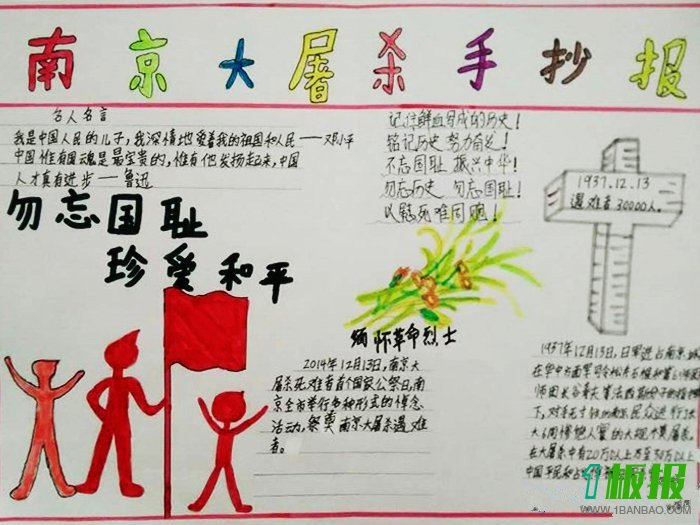 南京大屠杀手抄报
名人名言
我是中国人民的儿子,我深情地爱着我的祖国和人民——邓小平
中国惟有国魂是最宝贵的,惟有他发扬起来,中国
人才真有进步——鲁迅
勿忘国耻
珍爱和平
记住鲜血写成的历史!
铭记历史 努力奋斗!
不忘国耻 振兴中华!
勿忘历史 勿忘国耻!
以慰死难同胞!
1937.12.13
遇难者30000人。
缅怀革命烈士
2014年12月13日,南京大
屠杀死难者首个国家公祭日,南
京全市举行多种形式的悼念
活动,祭奠南京大屠杀遇难
者。
1937年12月13日,日军进占南京城
在华中方面军司令松井石根和第6师团
师团长谷寿夫等法西斯分子的指挥
下,对手无寸铁的南京民众进行了长
达6周惨绝人寰的大规模屠杀。
在大屠杀中有20万以上乃至30万以上
中国平民和
1板报
WWW.1BANBAO.COM